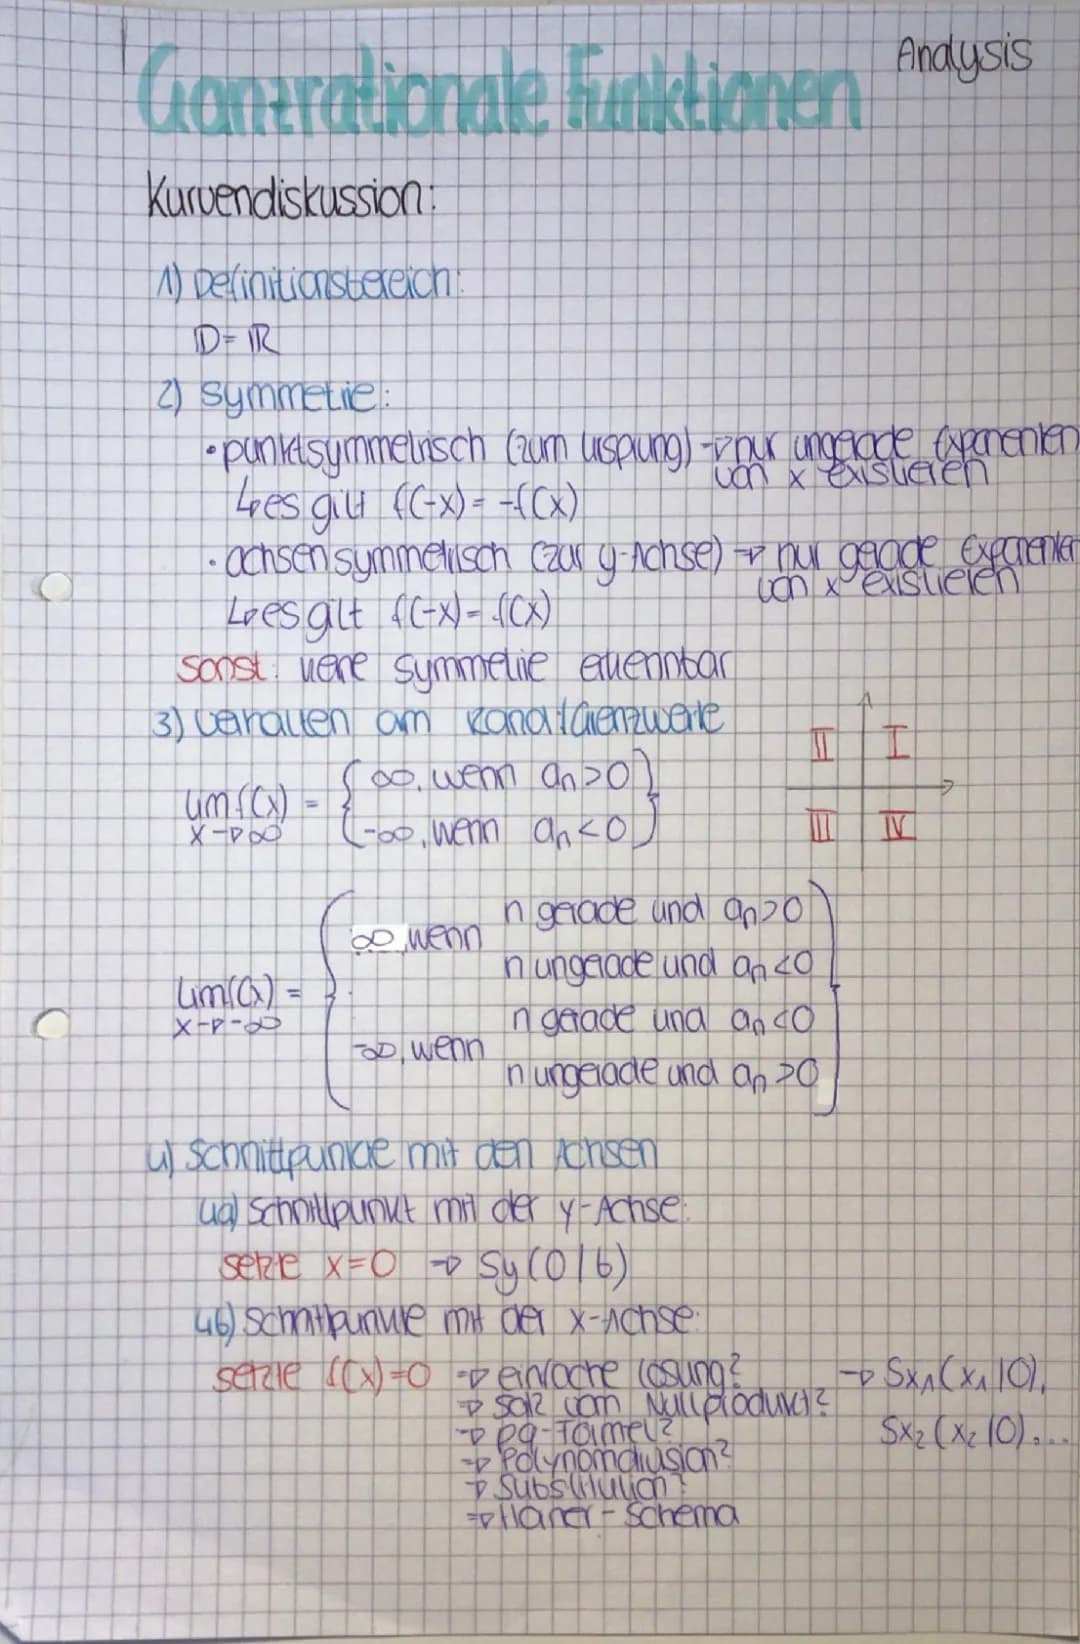 Analysis
Ganzrationale Funktionen
Kurvendiskussion:
1) Definitionsbereich:
D=ℝ
2) Symmetrie:
• punktsymmetrisch (zum Ursprung) → nur ungerade Exponenten
von x existieren
↳ es gilt f(-x) = -f(x)
• achsensymmetrisch (zur y-Achse) → nur gerade Exponenten
von x existieren
↳ es gilt f(-x) = f(x)
sonst: keine Symmetrie erkennbar
3) Verhalten am Rand/Grenzwerte
II I
III IV
lim f(x) = { ∞, wenn an>0
x→∞ -∞, wenn an<0 }
n gerade und an>0
∞, wenn
n ungerade und an<0
lim f(x) =
x→-∞
n gerade und an<0
-∞, wenn
n ungerade und an>0
4) Schnittpunkte mit den Achsen
4a) Schnittpunkt mit der y-Achse:
setze x=0 → Sy(0|b)
4b) Schnittpunkte mit der x-Achse:
setzte f(x)=0 → einfache Lösung? → Sx1(x1|0),
→ Satz vom Nullprodukt?
→ pq-Formel? Sx2(x2|0)...
→ Polynomdivision?
→ Substitution?
→ Horner-Schema